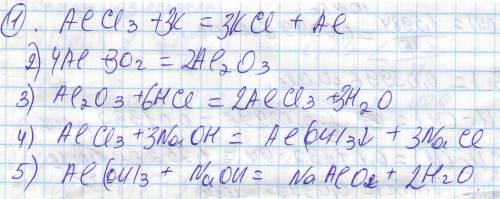 1. AlCl3 + 3K = 3KCl + Al
2) 4Al + 3O2 = 2Al2O3
3) Al2O3 + 6HCl = 2AlCl3 + 3H2O
4) AlCl3 + 3NaOH = Al(OH)3↓ + 3NaCl
5) Al(OH)3 + NaOH = NaAlO2 + 2H2O